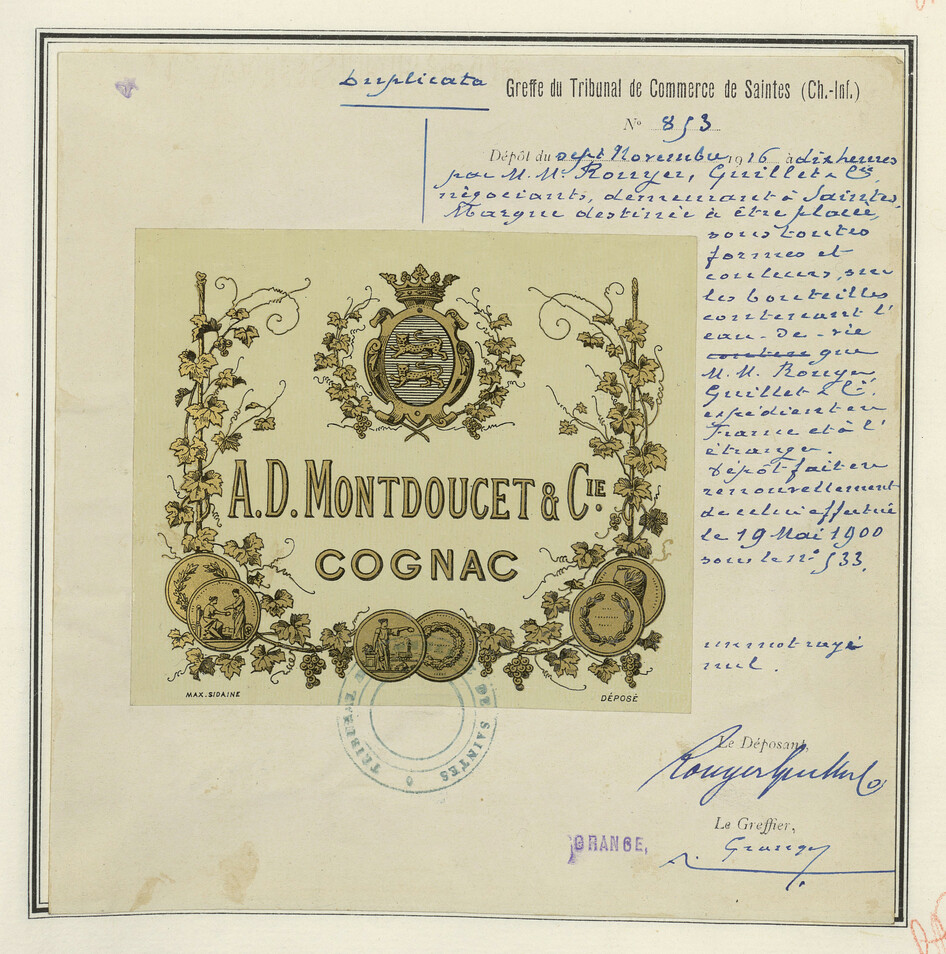 Duplicata
Greffe du Tribunal de Commerce de Saintes (Ch.-Inf.)
N° 853
Dépôt du sept Novembre 1916 à dix heures
par M. M. Rouyer, Guillet & Cie
négociants, demeurant à Saintes.
Marque destinée à être placée,
sous toutes
formes et
couleurs, sur
les bouteilles
contenant l'
eau-de-vie
que
M. M. Rouyer
Guillet & Cie.
expédient en
France et à l'
étranger.
Dépôt fait en
renouvellement
de celui effectué
le 19 Mai 1900
sous le n° 533.
un mot rayé
nul.
A.D. MONTDOUCET & CIE.
COGNAC
MAX. SIDAINE
DÉPOSÉ
TRIBUNAL DE SAINTES
Le Déposant,
Rouyer Guillet Co
Le Greffier,
GRANGE,
Grange